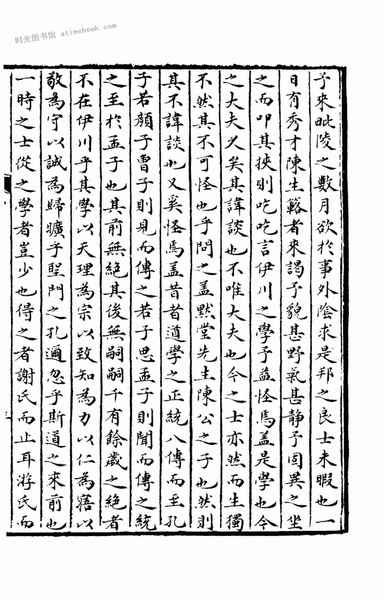 时光图书馆 atimebook.com
予來毗陵之數月欲於事外陰求是邦之良士未暇也一
日有秀才陳生籍者來謁予貌甚野氣甚靜予固異之坐
之而叩其挾則吃吃言伊川之學予益怪焉蓋是學也今
之大夫久矣其諱談也不唯大夫也今之士亦然而生獨
不然其不可怪也乎問之蓋默堂先生陳公之子也然則
其不諱談也又奚怪焉蓋昔者道學之正統八傳而至孔
子若顏子曾子則見而傳之若子思孟子則聞而傳之統
之至於孟子也其前無絶其後無嗣嗣千有餘歲之絶者
不在伊川乎其學以天理為宗以致知為力以仁為寤以
敬為守以誠為歸曠乎聖門之孔邇忽乎斯道之來前也
一時之士從之學者豈少也得之者謝氏而止耳游氏而